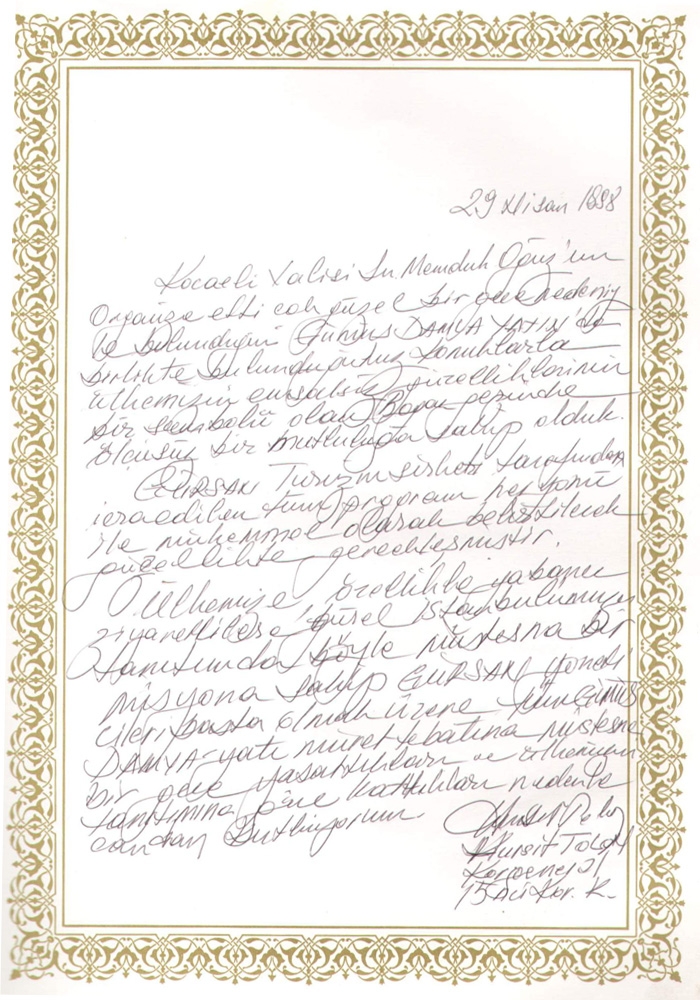 29 Nisan 1998
Kocaeli Valisi Sn Memduh Oğuz'un
Organize etti çok güzel bir gece nedeniy
le bulunduğum Gümüş DAMLA YATIN'da
birlikte bulunduğumuz konuklarla
ülkemizin emsalsiz güzelliklerinin
bir sembolü olan Boğaz gezinde
ölçüsüz bir mutluluğa sahip olduk.
GÜRSAN Turizm şirketi tarafından
icra edilen tüm program her yönü
ile mükemmel olarak belirtilecek
güzellikte gerçekleşmiştir.
Ülkemize, özellikle yabancı
ziyaretçilere güzel İstanbulumuzu
tanıtımda böyle müstesna bir
misyona sahip GÜRSAN yöneti
cileri başta olmak üzere tüm Gümüş
DAMLA yatı mürettebatına müstesna
bir gece yaşattıkları ve ülkemizin
tanıtımına katkıları nedenle
candan kutluyorum
Hurşit Tolon
Korgeneral
15 nci Kor. K.